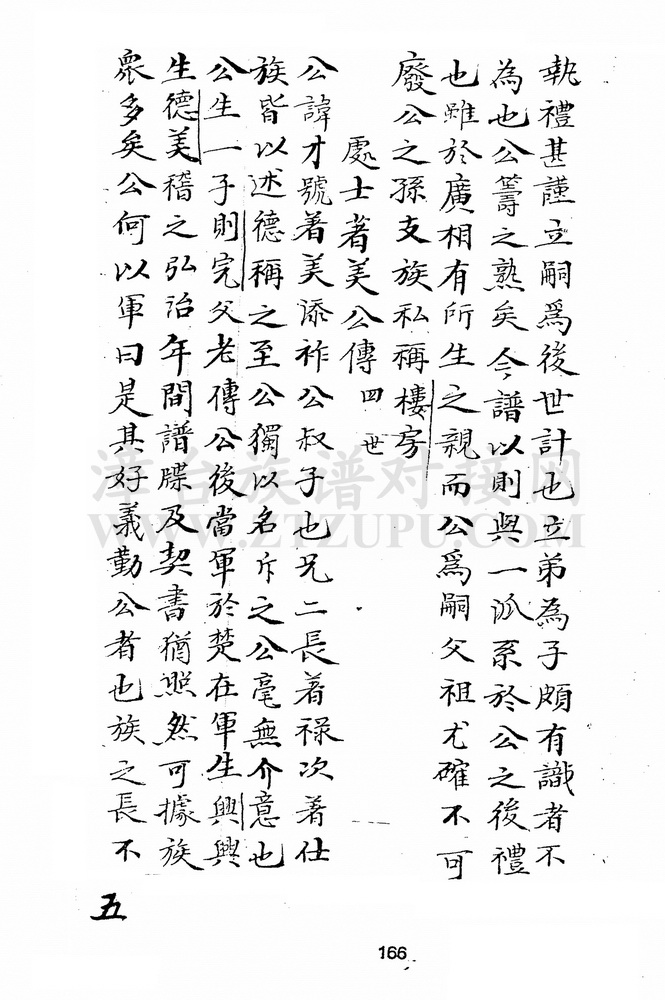 執禮甚謹立嗣爲後世計也立弟為子頗有識者不
為也公籌之熟矣今譜以則與一派系於公之後禮
也雖於廣相有所生之親而公爲嗣父祖尤確不可
廢公之孫支族私稱樓房
處士著美公傳 四世
公諱才號著美添祚公叔子也兄二長著祿次著仕
族皆以述德稱之至公獨以名斥之公毫無介意也
公生一子則完父老傳公後當軍於楚在軍生興興
生德美稽之弘治年間譜牒及契書猶照然可據族
眾多矣公何以軍曰是其好義勤公者也族之長不
五
166
漳台族谱对接网
WWW.ZTZUPU.COM